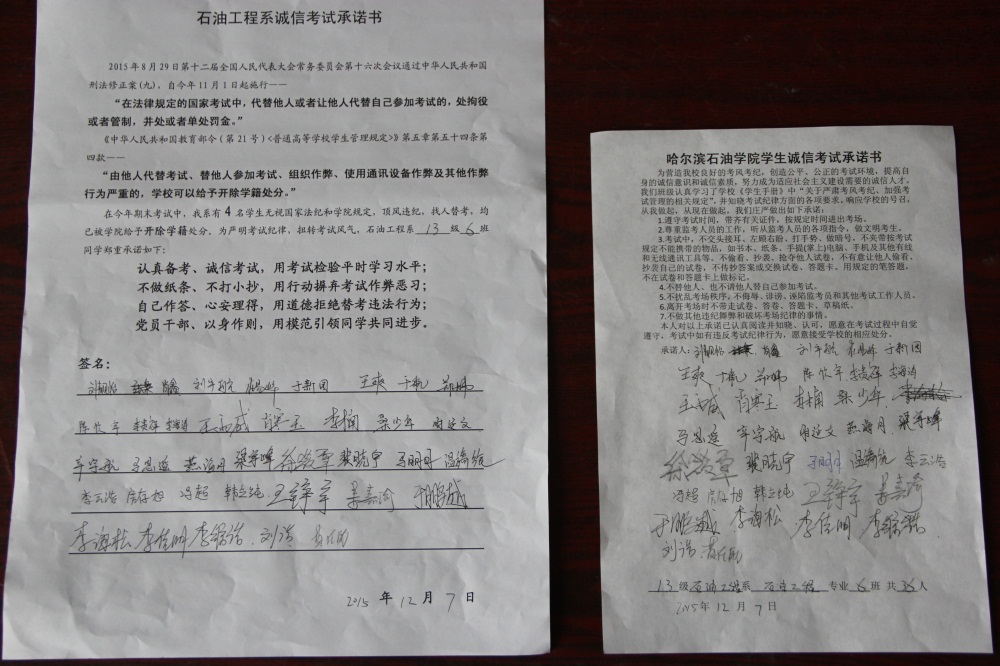 石油工程系诚信考试承诺书
2015年8月29日第十二届全国人民代表大会常务委员会第十六次会议通过中华人民共和国
刑法修正案(九)，自今年11月1日起施行——
“在法律规定的国家考试中，代替他人或者让他人代替自己参加考试的，处拘役
或者管制，并处或者单处罚金。”
《中华人民共和国教育部令(第21号)<普通高等学校学生管理规定>》第五章第五十四条第
四款——
“由他人代替考试、替他人参加考试、组织作弊、使用通讯设备作弊及其他作弊
行为严重的，学校可以给予开除学籍处分。”
在今年期末考试中，我系有4名学生无视国家法纪和学院规定，顶风违纪，找人替考，均
已被学院给于开除学籍处分。为严明考试纪律，扭转考试风气，石油工程系 13 级 6 班
同学郑重承诺如下：
认真备考、诚信考试，用考试检验平时学习水平；
不做纸条、不打小抄，用行动摒弃考试作弊恶习；
自己作答、心安理得，用道德拒绝替考违法行为；
党员干部、以身作则，用模范引领同学共同进步。
签名：
刘宇航 于新国 王爽
李楠 梁少年
马思远 燕海月 梁守峰 徐浩章 裴晓宁 马明月 温婧妮
李云浩 冯超 王锌宇 姜嘉渝 于鹏威
李海松 李佳明 刘浩
2015 年 12 月 7 日
哈尔滨石油学院学生诚信考试承诺书
为营造我校良好的考风考纪，创造公平、公正的考试环境，提高自
身的诚信意识和诚信素质，努力成为适应社会主义建设需要的诚信人才，
我们班级认真学习了学校《学生手册》中“关于严肃考风考纪、加强考
试管理的相关规定”，并知晓考试纪律方面的各项要求。响应学校的号召，
从我做起，从现在做起。我们庄严做出如下承诺：
1.遵守考试时间，带齐有关证件。按规定时间进出考场。
2.尊重监考人员的工作，听从监考人员的各项指令，做文明考生。
3.考试中，不交头接耳、左顾右盼、打手势、做暗号，不夹带按考试
规定不能携带的物品，如书本、纸条、手提(掌上)电脑、手机及其他有线
和无线通讯工具等。不偷看、抄袭、抢夺他人试卷，不有意让他人偷看、
抄袭自己的试卷，不传抄答案或交换试卷、答题卡。用规定的笔答题。
不在试卷和答题卡上做标记。
4.不替他人、也不请他人替自己参加考试。
5.不扰乱考场秩序。不侮辱、诽谤、诬陷监考员和其他考试工作人员。
6.离开考场时不带走试卷、答卷、答题卡、草稿纸。
7.不做其他违纪舞弊和破坏考场纪律的事情。
本人对以上承诺已认真阅读并知晓、认可，愿意在考试过程中自觉
遵守，考试中如有违反考试纪律行为，愿意接受学校的相应处分。
承诺人： 刘宇航 于新国
王爽
李楠 梁少年
马思远 燕海月 梁守峰
徐浩章 裴晓宁 马明月 温婧妮 李云浩
冯超 王锌宇 姜嘉渝
于鹏威 李海松 李佳明
刘浩
13 级 石油工程系 石油工程 专业 6 班 共 36 人
2015年 12 月 7 日